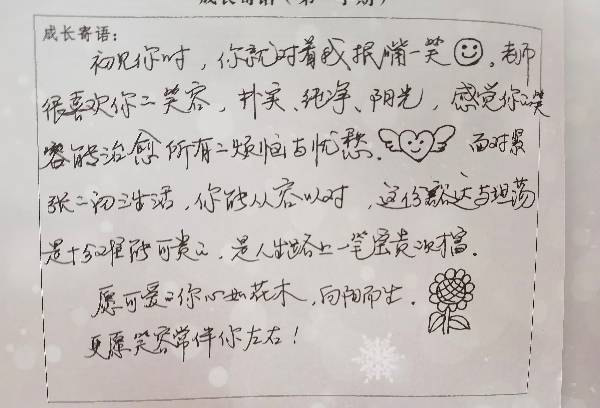 成长寄语(第一学期)
成长寄语:
初见你时,你就对着我抿嘴一笑。老师
很喜欢你的笑容,朴实、纯净、阳光,感觉你的笑
容能治愈所有的烦恼与忧愁。面对紧
张的初三生活,你能从容以对,这份豁达与坦荡
是十分难能可贵的,是人生路上一笔宝贵财富。
愿可爱的你心如花木,向阳而生。
更愿笑容常伴你左右!